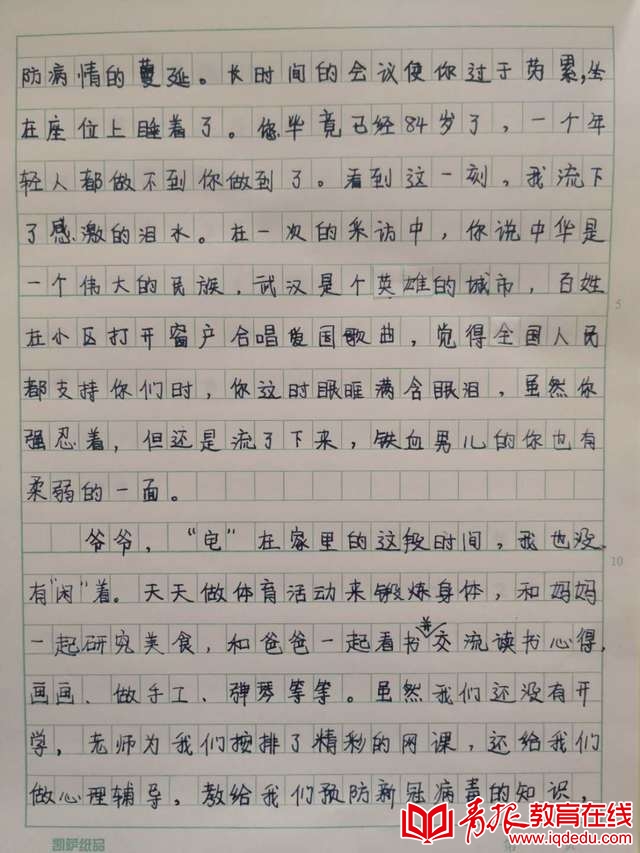 防病情的蔓延。长时间的会议使你过于劳累,坐
在座位上睡着了。您毕竟已经84岁了，一个年
轻人都做不到你做到了。看到这一刻，我流下
了感激的泪水。在一次的采访中，你说中华是
一个伟大的民族，武汉是个英雄的城市，百姓
在小区打开窗户合唱爱国歌曲，觉得全国人民
都支持你们时，你这时眼眶满含眼泪，虽然你
强忍着，但还是流了下来，铁血男儿的你也有
柔弱的一面。
爷爷，“宅”在家里的这段时间，我也没
有“闲”着。天天做体育活动来锻炼身体，和妈妈
一起研究美食，和爸爸一起看书并交流读书心得，
画画、做手工、弹琴等等。虽然我们还没有开
学，老师为我们按排了精彩的网课，还给我们
做心理辅导，教给我们预防新冠病毒的知识，
5
10
凯萨纸品
青报教育在线
www.iqdedu.com